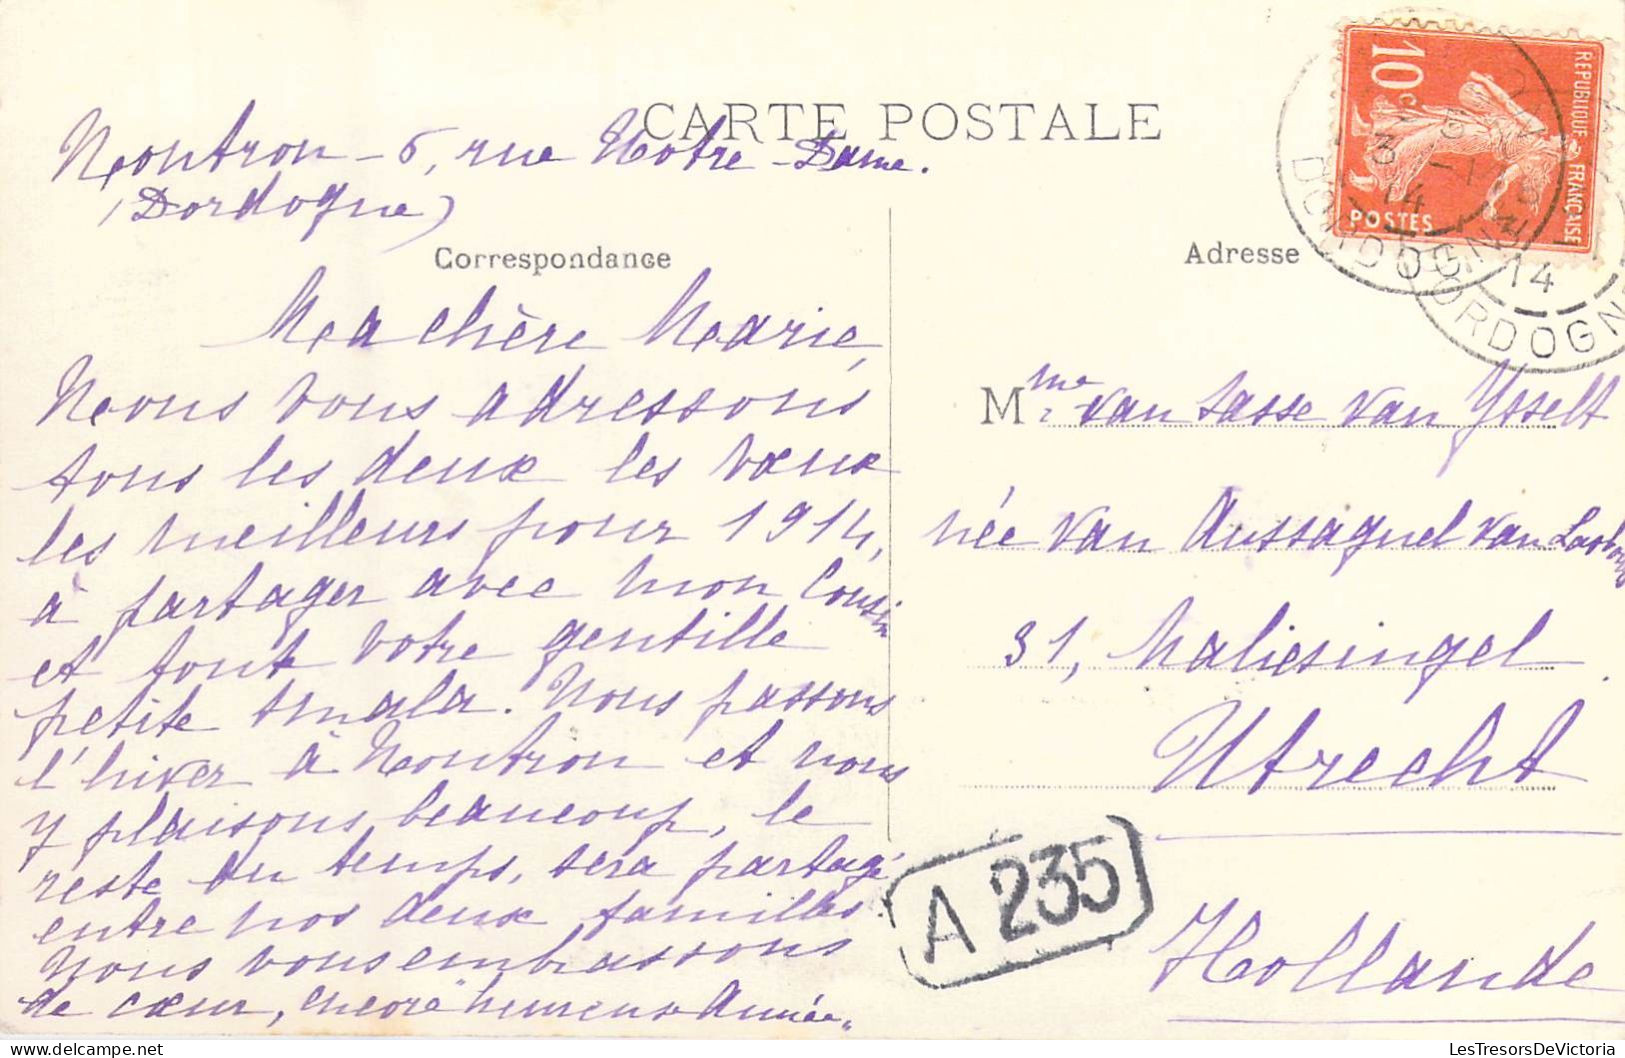 CARTE POSTALE
Nontron - 6, rue Notre-Dame.
(Dordogne)
Correspondance
Ma chère Marie,
Nous vous adressons
tous les deux les vœux
les meilleurs pour 1914,
à partager avec mon Cousin
et toute votre gentille
petite smala. Nous passons
l'hiver à Nontron et nous
y plaisons beaucoup, le
reste du temps, sera partagé
entre nos deux familles.
Nous vous embrassons
de cœur, encore "heureuse Année"
REPUBLIQUE FRANÇAISE
10 c
POSTES
3 -1
14
DORDOGNE
14
DORDOGNE
Adresse
Mme van Sasse van Ysselt
née van Aussaguel van
31, Maliesingel.
Utrecht
A 235
Hollande
LesTresorsDeVictoria